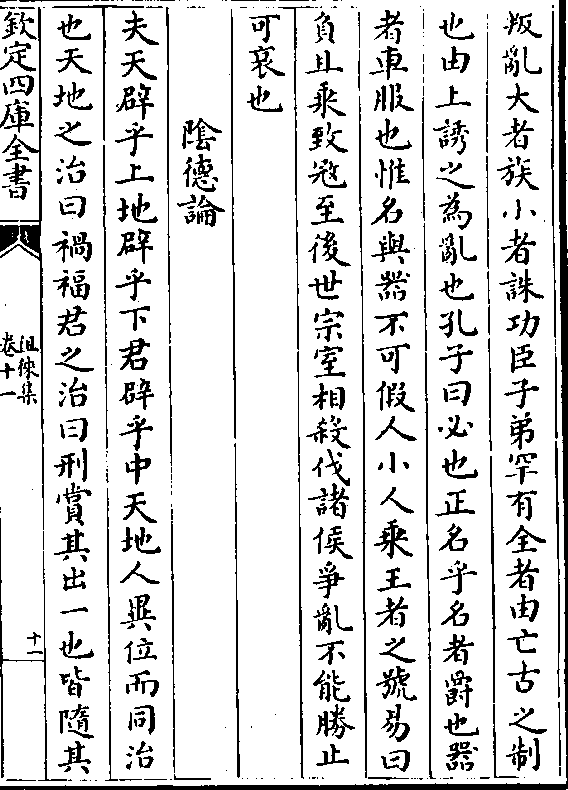 叛亂大者族小者誅功臣子弟罕有全者由亡古之制
也由上誘之為亂也孔子曰必也正名乎名者爵也器
者車服也惟名與器不可假人小人乘王者之號易曰
負且乘致冦至後世宗室相殺伐諸侯爭亂不能勝止
可哀也
隂德論
夫天辟乎上地辟乎下君辟乎中天地人異位而同治
也天地之治曰禍福君之治曰刑賞其出一也皆隨其
欽定四庫全書
徂徠集
卷十一
十一